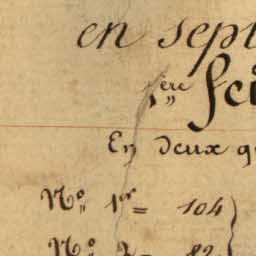 en sept
1ère Sei
En deux q
N° 1er = 104
N° 2 = 82